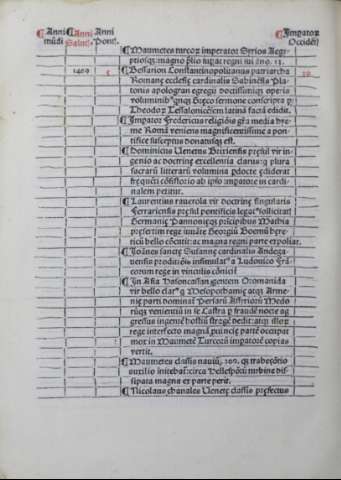 Anni mūdi
Anni Saluti
Anni Pont.
Impator Occidet
Maumetes turcoꝝ imperator Syrios Aegi
ptiosq; magno plio fugat regni sui āno. 13.
1469 5 Bessarion Constantinopolitanus patriarcha 30
Romane ecclesie cardinalis Sabinēsis Pla
tonis apologran egregii doctissimiq; operis
voluminib' qnq; greco sermone conscripta p
Theodoꝝ Tessalonicēsem latina facta edidit.
Impator Fredericus religiōis gra media hye
me Romā veniens magnificentissime a pon
tifice susceptus donatusq; est.
Dominicus Venetus Brixiensis presul vir in
genio ac doctrine excellentia clarus: q plura
sacrarū litterarū volumina pdocte edidit
frequēti cōsistorio ab ipso impatore in cardi
nalem petitur.
Laurentius rauerola vir doctrine singularis
Ferrariensis presul pontificis legat' sollicitat
Germanie Pannonieq; principibus Mathia
presertim rege inuāte Georgiū Boemū here
ticū bello cōcutit: ac magna regni parte expoliat.
Joānes sancte Susanne cardinalis Andega
uensis proditiōis insimulat' a Ludouico Frā
corum rege in vinculis cōiicit
In Asia Hasoncassan gentem Otomanida
vir bello clar' q Mesopothamie atq; Arme
nie parti dominat' Persarū Assirioꝝ Medo
rūq; venientiū in se castra p fraudē nocte ag
gressus ingentē hostiū stragē dedit: atq; illoꝝ
rege interfecto magnā puincie partē occupat
mox in Maumetē Turcoꝝ impatorē copias
vertit.
Maumetes classis nauiū. 300. q; trabezōtio
auxilio inītebat' circa Hellespōtū turbine dis
sipata magna ex parte perit.
Nicolaus chanales Venete classis prefectus